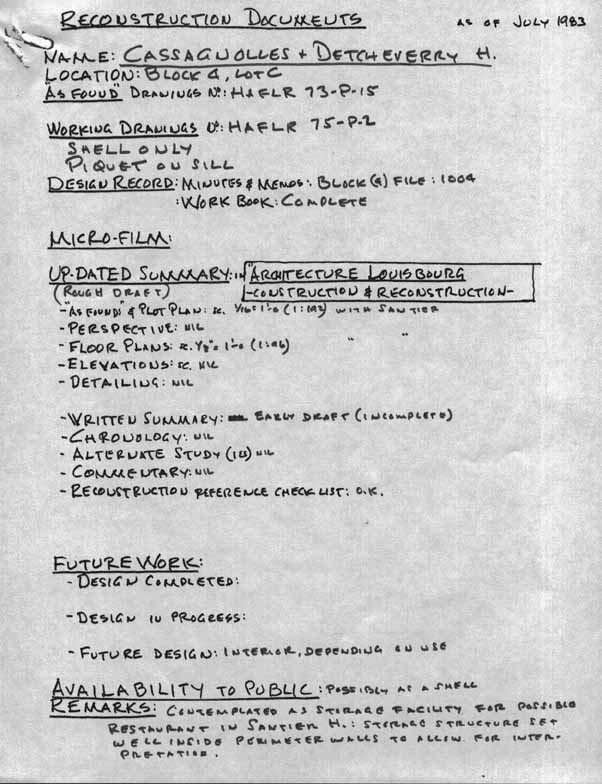 RECONSTRUCTION DOCUMENTS AS OF JULY 1983
NAME: CASSAGNOLLES + DETCHEVERRY H.
LOCATION: BLOCK 4, LOT C
"AS FOUND" DRAWINGS Nº: HAFLR 73-P-15
WORKING DRAWINGS Nº: HAFLR 75-P-2
SHELL ONLY
PIQUET ON SILL
DESIGN RECORD: MINUTES & MEMOS: BLOCK (4) FILE: 1004
: WORK BOOK: COMPLETE
MICRO-FILM:
UP-DATED SUMMARY: IN "ARCHITECTURE LOUISBOURG
(ROUGH DRAFT) -CONSTRUCTION & RECONSTRUCTION-
-"AS FOUND" & PLOT PLAN: SC. 1/16"=1'-0 (1:192) WITH SANTIER
-PERSPECTIVE: NIL
-FLOOR PLANS: SC. 1/8"=1'-0 (1:96) " "
-ELEVATIONS: SC. NIL
-DETAILING: NIL
-WRITTEN SUMMARY: EARLY DRAFT (INCOMPLETE)
-CHRONOLOGY: NIL
-ALTERNATE STUDY NIL
-COMMENTARY: NIL
-RECONSTRUCTION REFERENCE CHECK LIST: O.K.
FUTURE WORK:
-DESIGN COMPLETED:
-DESIGN IN PROGRESS:
-FUTURE DESIGN: INTERIOR, DEPENDING ON USE
AVAILABILITY TO PUBLIC: POSSIBLY AS A SHELL
REMARKS: CONTEMPLATED AS STORAGE FACILITY FOR POSSIBLE
RESTAURANT IN SANTIER H.: STORAGE STRUCTURE SET
WELL INSIDE PERIMETER WALLS TO ALLOW FOR INTER-
PRETATION.